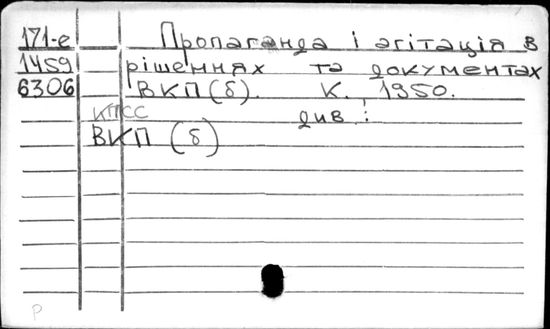 171-е Пропаганда і агітація в
1459 рішеннях та документах
6306 ВКП(б). К., 1950.
КПСС див:
ВКП (б)
Р